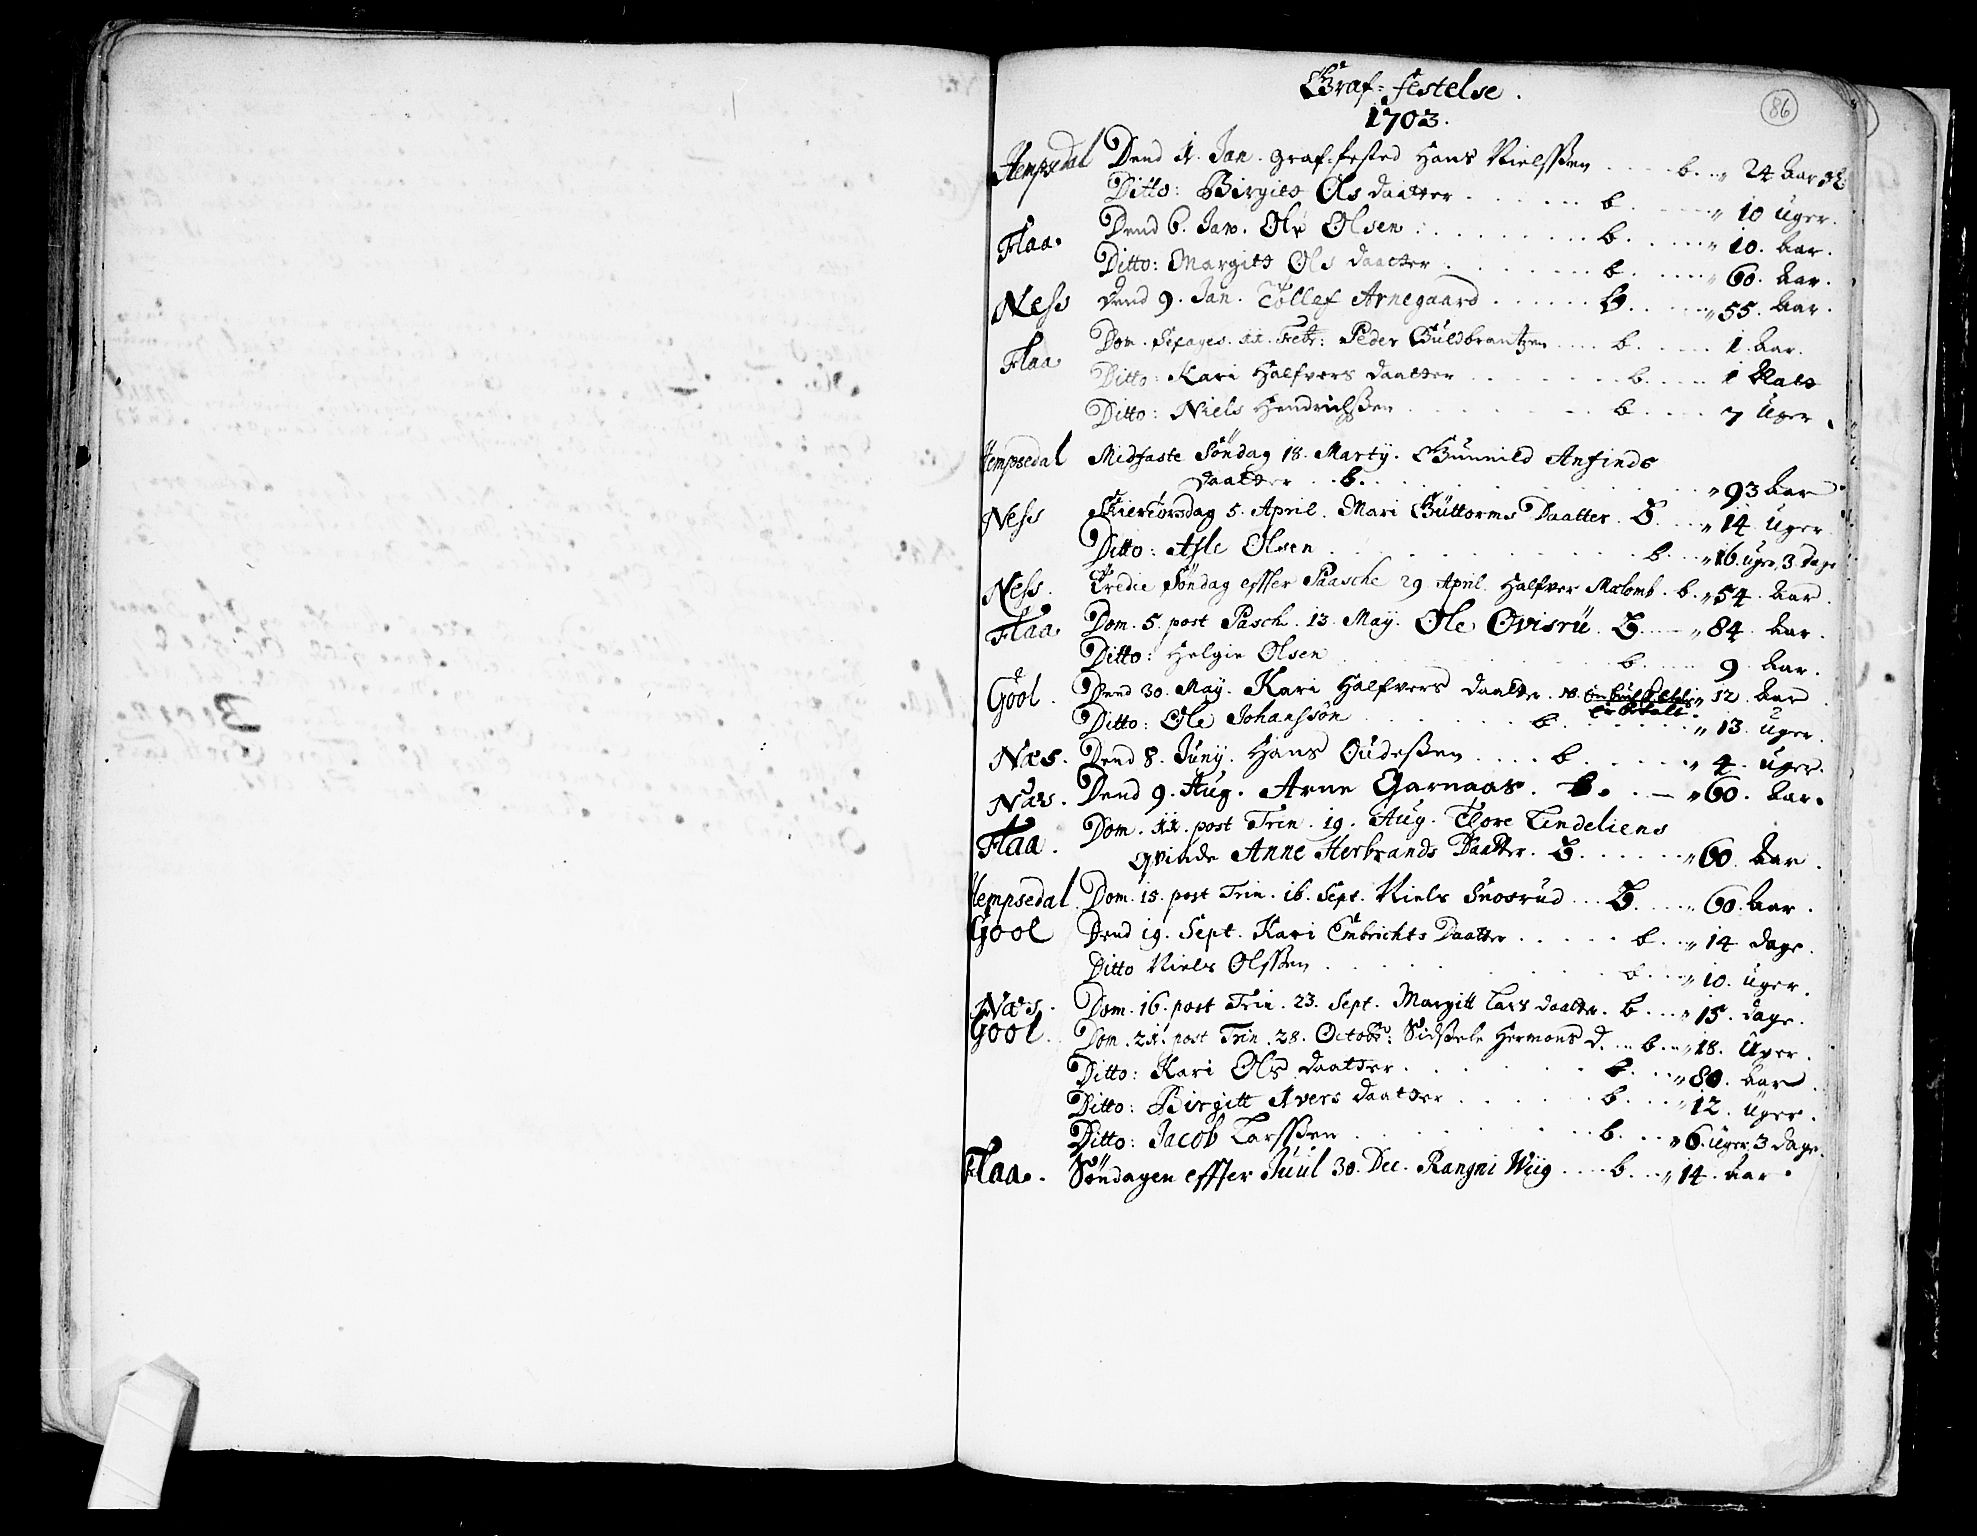 Graf-festelse.
86
1703.
Hempsedal Dend 1. Jan. graf-fested Hans Nielsßen .... b... 24 Aar
Ditto: Birgitt Ols daatter ...... b. .... 10 Uger.
Flaa. Dend 6. Jan. Ole Olsen ........ b. .... 10. Aar.
Ditto: Margitt Ols daatter ...... b. .... 60. Aar.
Ness Dend 9. Jan. Tollef Arnegaard ...... b. .... 55. Aar.
Flaa Dom. Sexages. 11. Febr: Peder Guldbrantzen .... b. .... 1. Aar.
Ditto: Kari Halfvors daatter ...... b. .... 1 Natt
Ditto: Niels Hendrichßen ...... b. .... 7 Uger.
Hempsedal Midfaste Søndag 18. Martij. Gunnild Anfinds
daatter .. b. ........ 93 Aar
Ness Skiertorsdag 5. April. Mari Guttorms Daatter. b. ... 14. Uger
Ditto: Asle Olsen ........ b. .. 16. uger, 3 dage
Ness. Tredie Søndag effter Paasche 29 April. Halfvor Mælomb. b. 54. Aar.
Flaa. Dom. 5. post Pasch. 13. May. Ole Qvisru. b. .... 84. Aar.
Ditto: Helgie Olsen ........ b. .... 9 Aar.
Gool. Dend 30. May. Kari Halfvors daatter. er betalt. 12. Aar
Ditto: Ole Johansøn ...... b. .... 13. Uger.
Næs. Dend 8. Junij. Hans Oudeßen .... b. .... 4. uger.
Næs. Dend 9. Aug. Arne Garnaas. b. .. 60. Aar.
Flaa. Dom. 11. post Trin. 19. Aug. Tore Lindeliens
qvinde Anne Herbrands Daatter. b. ..... 60. Aar.
Hempsedal Dom. 15. post Trin. 16. Sept. Niels Snosrud ... b. .... 60. Aar.
Gool Dend 19. Sept. Kari Embrichts Daatter ..... b. .. 14 dage.
Ditto Niels Olsßen ........ b. .. 10. Uger.
Næs. Dom. 16. post Trin. 23. Sept. Margitt Lars daatter. b. .. 15. dage.
Gool. Dom. 21. post Trin. 28. Octobr: Sidßele Hermans d. .. b. .. 18. Uger.
Ditto: Kari Ols daatter ...... b. .. 80. Aar.
Ditto: Birgitt Ivers daatter ..... b. .. 12. Uger.
Ditto: Jacob Larsßen ...... b. .. 6. uger, 3 dage.
Flaa. Søndagen effter Juul 30. Dec. Rangni Wiig .... b. .. 14. Aar.